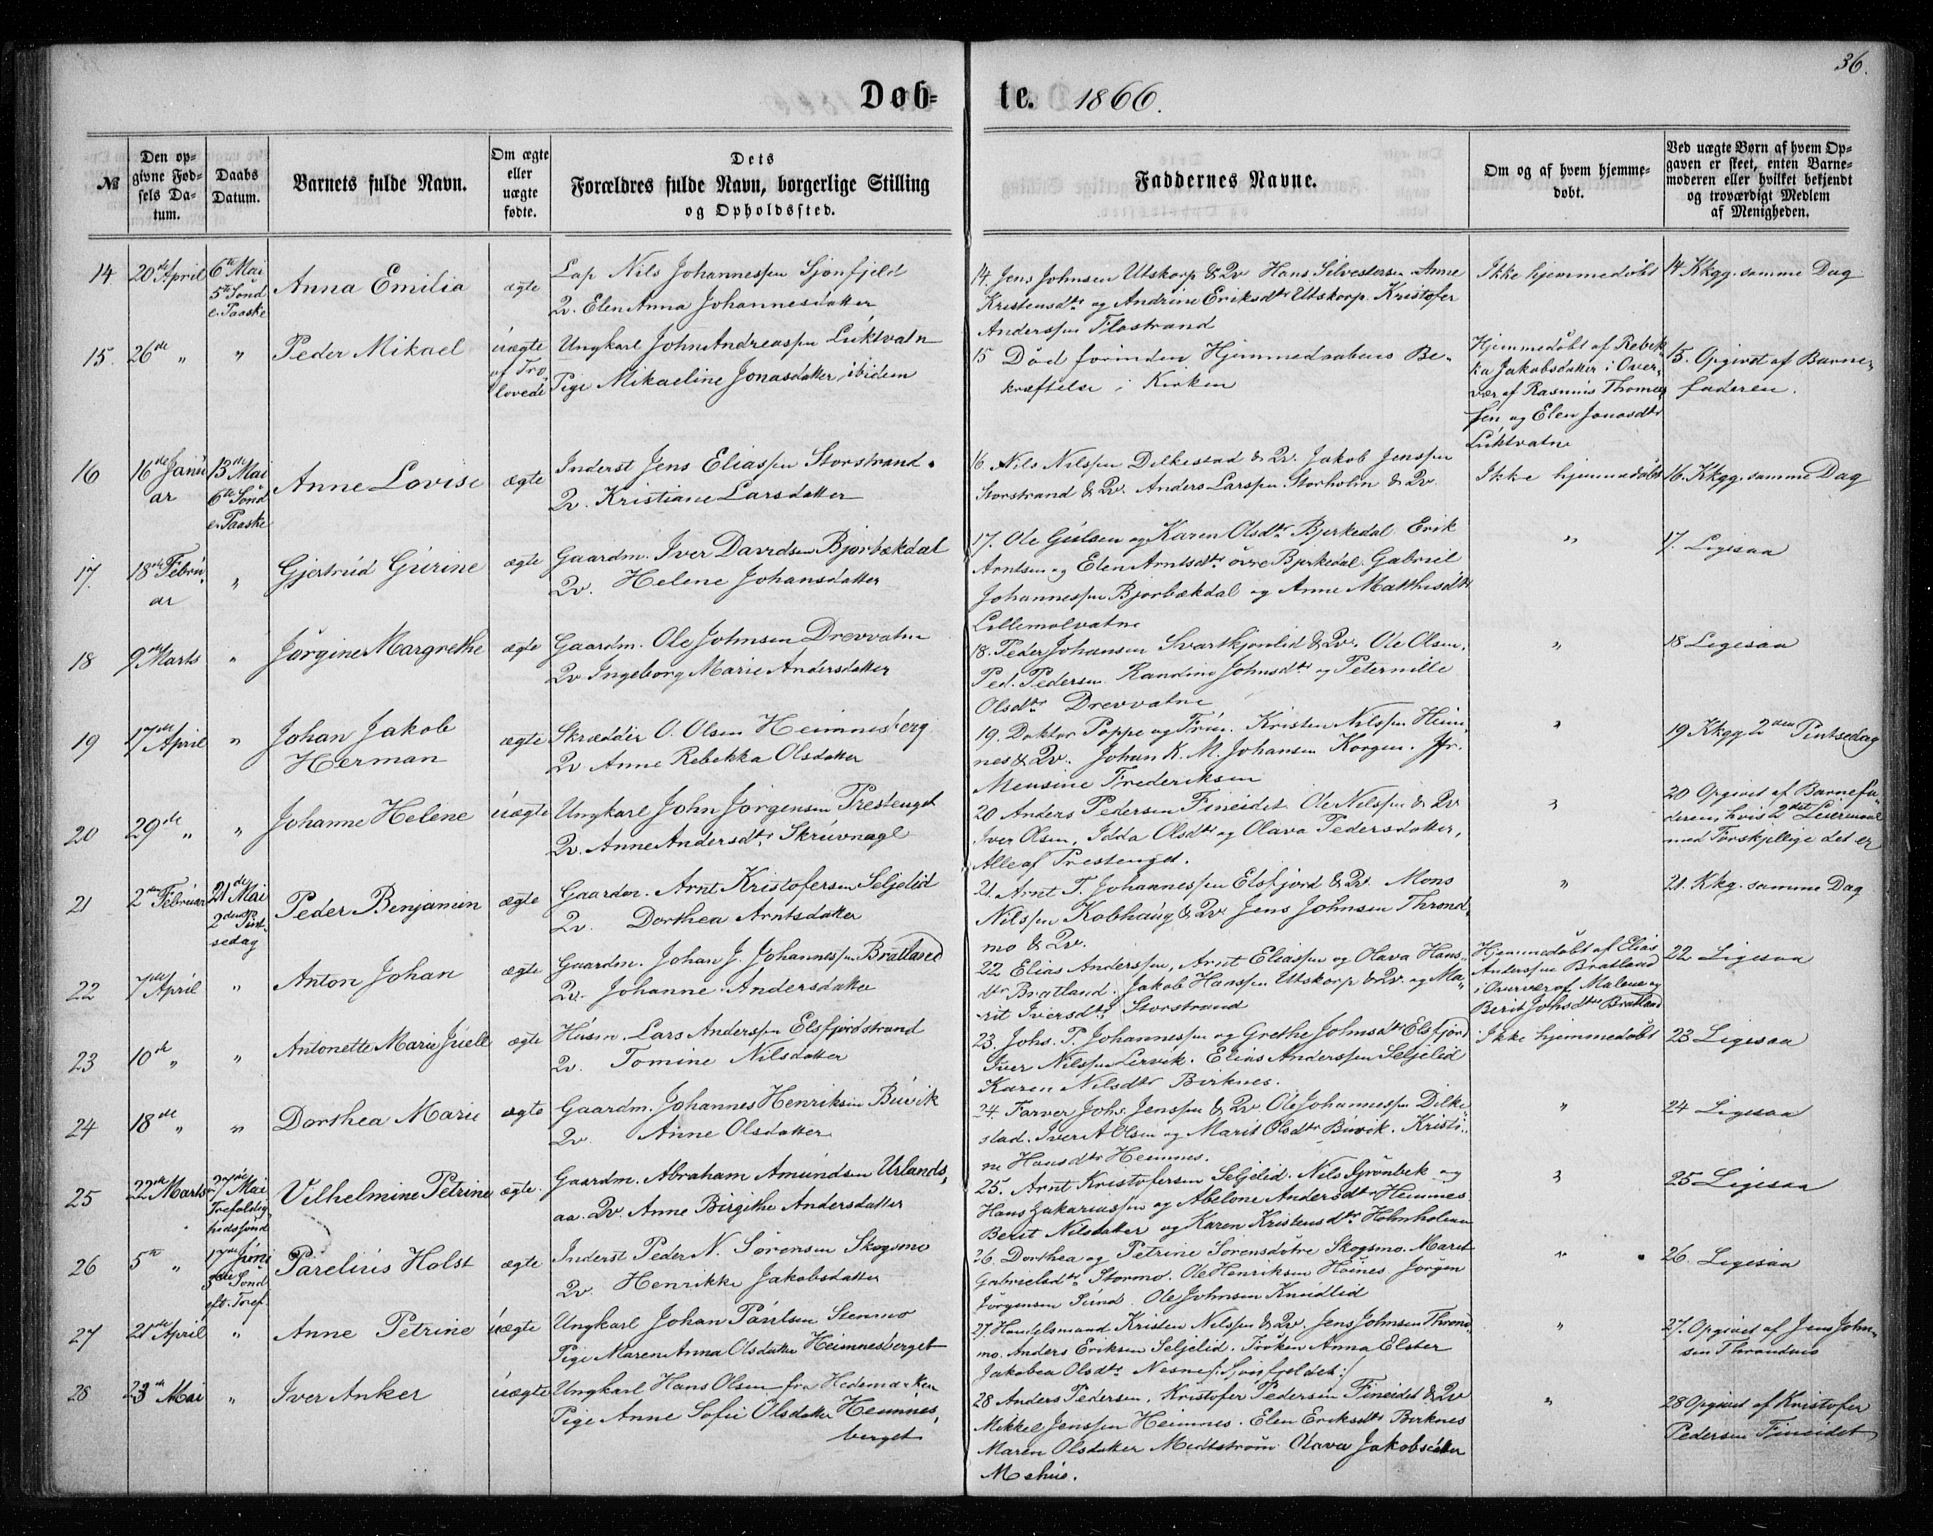 36.
Døb-
te. 1866.
№
Den op-
givne Fød-
sels Da-
tum.
Daabs
Datum.
Barnets fulde Navn.
Om ægte
eller
uægte
fødte.
Dets
Forældres fulde Navn, borgerlige Stilling
og Opholdssted.
Faddernes Navne.
Om og af hvem hjemme-
døbt.
Ved uægte Børn af hvem Op-
gaven er skeet, enten Barne-
moderen eller hvilket bekjendt
og troværdigt Medlem
af Menigheden.
14
20de April
6te Mai
5te Sönd
e. Paaske
Anna Emilia
ægte
Lap Nils Johannessen Sjonfjeld
Qv. Elen Anna Johannesdatter
14. Jens Johnsen Utskorp & Qv Hans Silvestersen Anne
Kristensdtr og Andrine Eriksdtr Utskorp. Kristofer
Anderssen Flostrand
Ikke hjemmedöbt
14 Kkgg. samme Dag
15.
26de "
"
Peder Mikael
uægte
af Tro-
lovede
Ungkarl John Andreassen Luktvatn
Pige Mikaeline Jonasdatter, ibidem
15 Död forinden Hjemmedaabens Be-
kræftelse i Kirken
Hjemmedöbt af Rebek-
ka Jakobsdatter i Over-
vær af Rasmus Thomas-
sen og Elen Jonasdtr
Luktvatne
15. Opgivet af Barne-
faderen.
16
16de Janu
ar
13de Mai
6te Sönd
e. Paaske
Anne Lovise
ægte
Inderst Jens Eliassen Storstrand.
Qv. Kristiane Larsdatter
16 Nils Nilssen Dilkestad & Qv. Jakob Jenssen
Storstrand & Qv. Anders Larssen Storholm & Qv
Ikke hjemmedöbt
16. Kkgg. samme Dag
17.
18de Febru-
ar
"
Gjertrud Gurine
ægte
Gaardm. Iver Davidsen Bjorbækdal
Qv. Helene Johansdatter
17. Ole Gulsen og Karen Olsdtr Bjerkedal Erik
Arntsen og Elen Arntsdtr övre Bjerkedal. Gabriel
Johannessen Bjorbækdal og Anne Matthisdtr
Lillemolvatne
"
17. Ligesaa
18
9de Marts
"
Jörgine Margrethe
ægte
Gaardm. Ole Johnsen Drevvatne
Qv Ingeborg Marie Andersdatter
18. Peder Johansen Svartkjönlid & Qv. Ole Olsen.
Ped. Pedersen Randine Johnsdtr og Peternille
Olsdtr Drevvatne
"
18 Ligesaa
19
17de April
"
Johan Jakob
Herman
ægte
Skrædder O. Olsen Heimnesberg
Qv Anne Rebekka Olsdatter
19. Doktor Poppe og Frue. Kristen Nilssen Heim-
nes & Qv. Johan K. M. Johansen Korgen. Jfr.
Mensine Frederiksen
"
19 Kkgg. 2den Pintsedag
20
29de "
"
Johanne Helene
uægte
Ungkarl John Jörgensen Prestenget
Qv. Anne Andersdtr Skruvnagl
20 Anders Pedersen Fineidet. Ole Nilssen & Qv
Iver Olsen, Idda Olsdtr og Olava Pedersdatter,
Alle af Prestenget.
"
20 Opgivet af Barnefa-
deren, hvis 2det Leiermaal
med Forskjellige det er
21
2den Februar
21de Mai
2den Pint-
sedag
Peder Benjamin
ægte
Gaardm. Arnt Kristofersen Seljelid
Qv. Dorthea Arntsdatter
21. Arnt T. Johannessen Elsfjord & Qv. Mons
Nilssen Kobhaug & Qv Jens Johnsen Thrond-
mo & Qv.
"
21. Kkg. samme Dag
22
7de April
"
Anton Johan
ægte
Gaardm. Johan J. Johannessen Bratland
Qv. Johanne Andersdatter
22 Elias Anderssen, Arnt Eliassen og Olava Hans-
dtr Bratland. Jakob Hanssen Utskorp & Qv. og Ma-
rit Iversdtr Storstrand
Hjemmedöbt af Elias
Anderssen Bratland
i Overvær af Malene og
Berit Johsdtr Bratland
22 Ligesaa
23
10de "
"
Antonette Marie Juell
ægte
Husm. Lars Anderssen Elsfjordstrand
Qv. Tomine Nilsdatter
23. Johs. T. Johannessen og Grethe Johnsdtr Elsfjord
Iver Nilssen Lervik. Elias Anderssen Seljelid
Karen Nilsdtr Birknes.
Ikke hjemmedöbt
23 Ligesaa
24
18de "
"
Dorthea Marie
ægte
Gaardm. Johannes Henriksen Buvik
Qv. Anne Olsdatter
24. Farver Johs. Jenssen & Qv Ole Johannessen Dilke-
stad. Iver A Olsen og Marit Olsdtr Buvik. Kristi-
ne Hansdtr Heimnes.
"
24 Ligesaa
25
22de Marts
27de Mai
Trefoldig-
hedssönd
Vilhelmine Petrine
ægte.
Gaardm. Abraham Amundsen Urlands-
aa. Qv. Anne Birgithe Andersdatter
25. Arnt Kristofersen Seljelid. Nils Grönbek og
Hans Zakariassen og Abelone Andersdtr Hemnes
Berit Nilsdatter og Karen Kristensdtr Holmholmen
"
25 Ligesaa
26
5te "
17de Juni
3die Sönd
eft. Tref.
Parelius Holst
ægte
Inderst Peder N. Sörensen Skogsmo
Qv. Henrikke Jakobsdatter
26. Dorthea og Petrine Sörensdötre Skogsmo. Marit
Gabrielsdtr Stormo. Ole Henriksen Höines Jörgen
Jörgensen Sund. Ole Johnsen Knudlid
"
26. Ligesaa
27
21de April
"
Anne Petrine
uægte
Ungkarl Johan Paulsen Stenmo
Pige Maren Anna Olsdatter Heimnesberget
27 Handelsmand Kristen Nilssen & Qv. Jens Johnsen Thrond-
mo. Anders Eriksen Seljelid. Fröken Anna Elster
Jakobea Olsdtr Nesne
"
27. Opgivet af Jens John-
sen Throndmo
28
23de Mai
"
Iver Anker
uægte
Ungkarl Hans Olsen fra Hedemarken
Pige Anne Sofie Olsdatter Heimnes-
berget
28 Anders Pedersen, Kristofer Pedersen Fineidet & Qv
Mikkel Jenssen Heimnes. Elen Eriksdtr Birknes
Maren Olsdatter Medtström Olava Jakobsdatter
Mehus.
"
28 Opgivet af Kristofer
Pedersen Fineidet